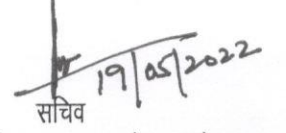 19/05/2022
सचिव